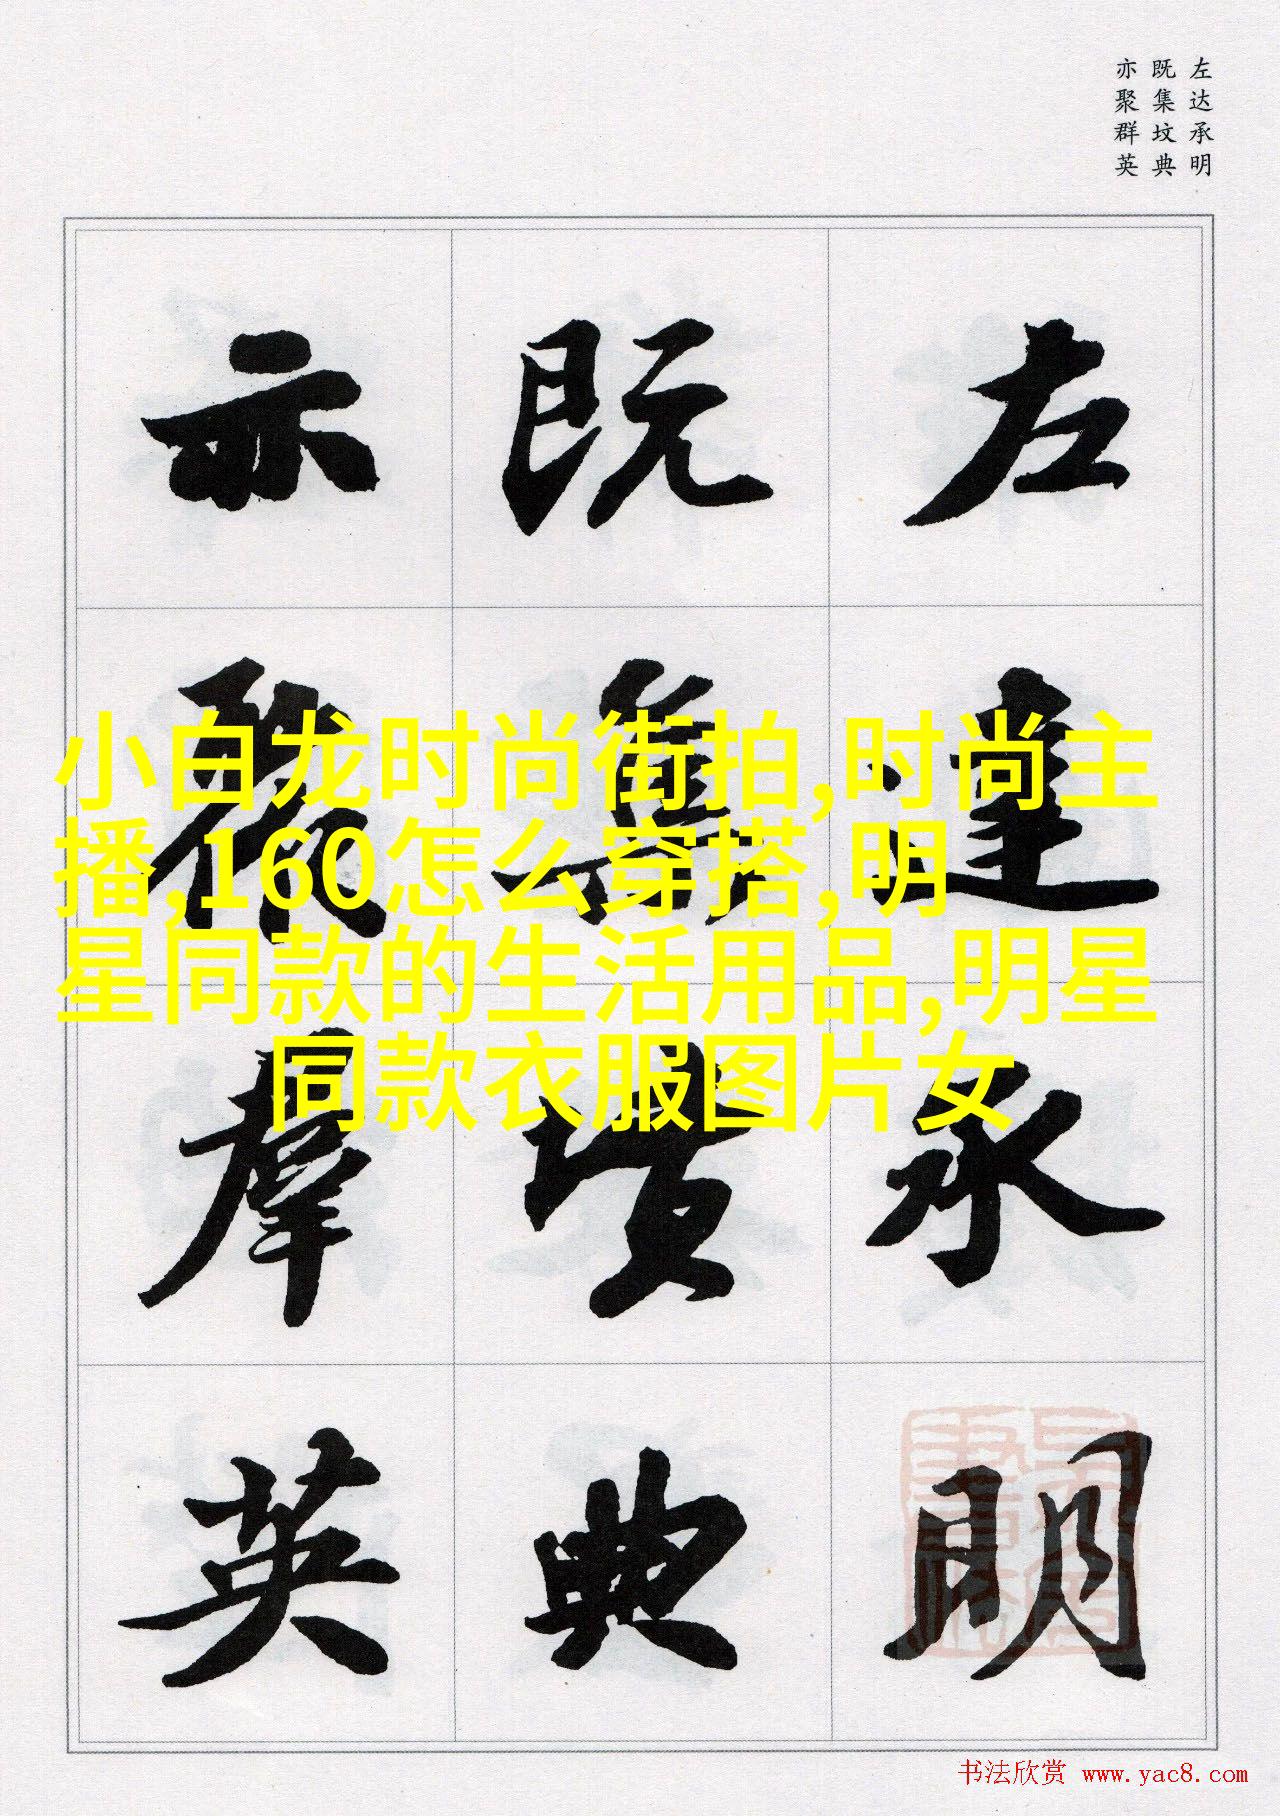 左达承明
既集坟典
亦聚群英
左達承明
既集墳典
亦聚羣英
小白龙时尚街拍,时尚主
播,160怎么穿搭,明
星同款的生活用品,明星
同款衣服图片女
书法欣赏 www.yac8.com